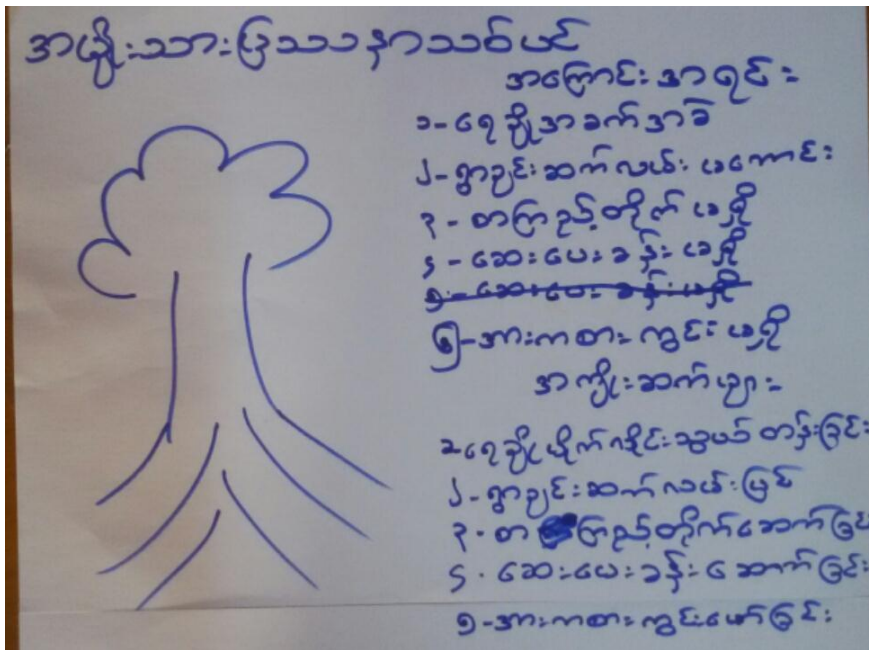 အမျိုးသားပြဿနာသစ်ပင်
အကြောင်းအရင်း
၁-ရေချိုအခက်အခဲ
၂-ရွာချင်းဆက်လမ်းမကောင်း
၃-စာကြည့်တိုက်မရှိ
၄-ဆေးပေးခန်းမရှိ
၅-ဆေးပေးခန်းမရှိ
၅-အားကစားကွင်းမရှိ
အကျိုးဆက်များ
၁-ရေချိုပိုက်လိုင်းသွယ်တန်းခြင်း
၂-ရွာချင်းဆက်လမ်းပြင်
၃-စာကြည့်တိုက်ဆောက်ခြင်း
၄-ဆေးပေးခန်းဆောက်ခြင်း
၅-အားကစားကွင်းဖော်ခြင်း